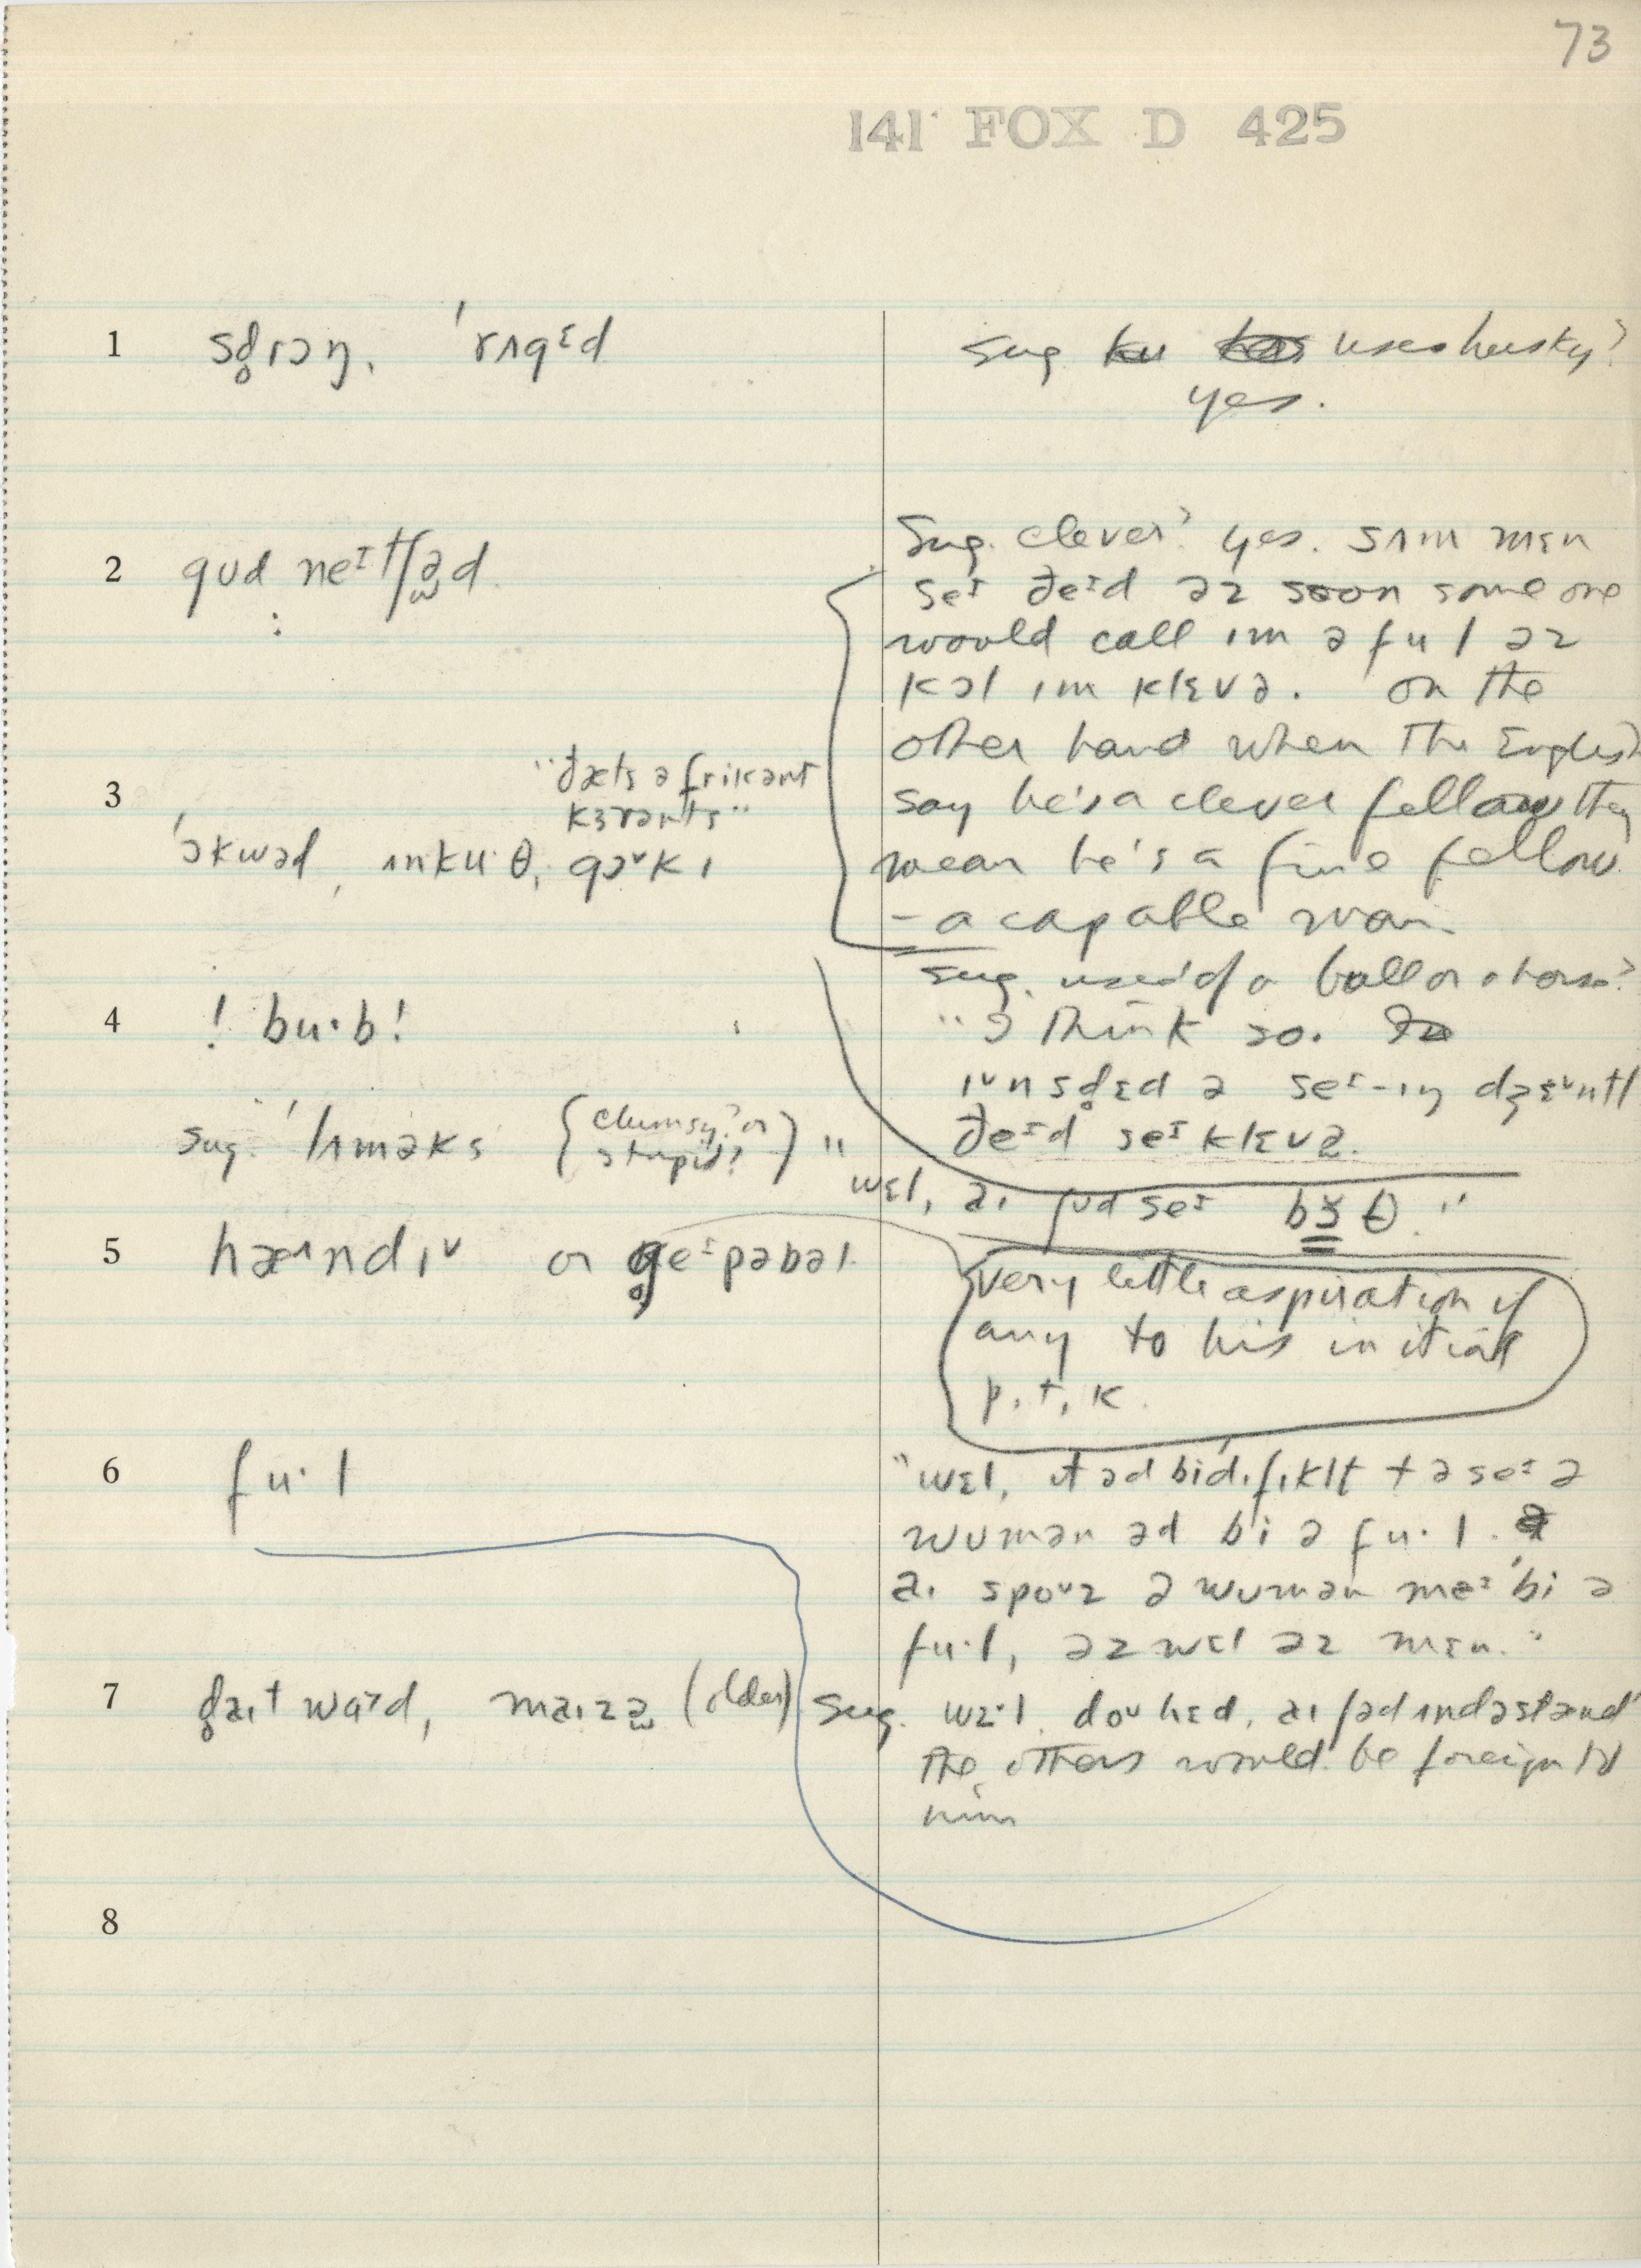 73
141 FOX D 425
1 sd̥rɔŋ, ˈrʌgɛd
sug. uses husky?
yes.
2 gud neɪtʃəd
Sug. clever? yes. sʌm mɛn
seɪ ðeɪd əz soon some one
would call ɪm ə ful əz
kɔl ɪm klɛvə. on the
other hand when the English
say he's a clever fellow they
mean he's a fine fellow
– a capable man
3 "ðæts ə frikənt
kɜrənts"
ˈɔkwəd, ɪnkuˑθ, gɔᵛkɪ
sug. used of a ball or a horse?
"I think so.
4 ! buˑb!
ɪᵛnsd̥ɛd ə seɪ-ɪŋ dʒɛᵛntl
ðeɪd seɪ klɛvə.
sug. ˈlʌməks {clumsy? or
stupid?} "
wɛl, aɪ ʃud seɪ bɜθ."
5 hæᴧndɪᵛ or g̥eɪpəbəl
very little aspiration if
any to his initial
p, t, k.
6 fuˑl
"wɛl, ɪt əd biˈdɪfɪklt tə seɪ ə
wumən əd bi ə fuˑl.
aɪ spoᵘz ə wumən meɪ ˈbi ə
fuˑl, əz wɛl əz mɛn."
7 d̥aɪt wad, maɪzə (older) sug. doᵘ hɛd, aɪ ʃəd ʌndəstænd
the others would be foreign to
him
8